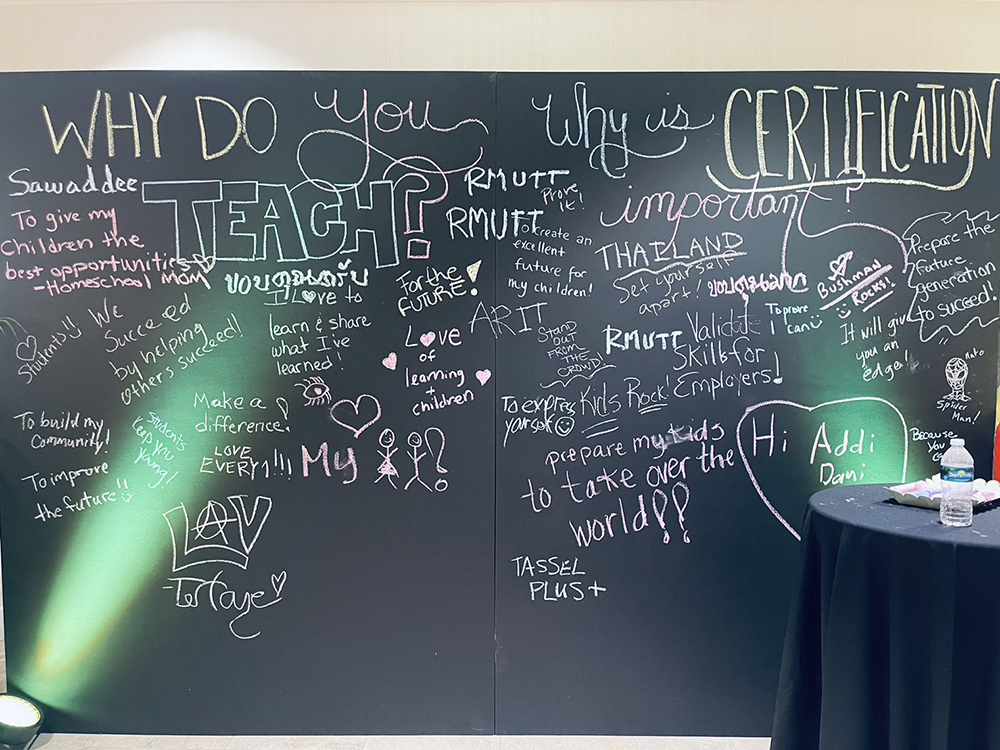 WHY DO You
TEACH?
Sawaddee
To give my
Children the
best opportunities
- Homeschool Mom
ขอบคุณครับ
RMUTT
RMUTT
For the
FUTURE!
Students!!
We
Succeed
by helping
others succeed!!
I ♥ Love to
learn & share
what I've
learned!
Love
of
learning
+
children
To build my
Community!
To improve
the future
Students
keep you
young!
Make a
difference!
LOVE
EVERY1!!!
My
LAV
Why is CERTIFICATION
important?
Prove
it!
To create an
excellent
future for
my children!
THAILAND
Set yourself
apart!
ARIT
STAND
OUT
FROM
THE
CROWD!
RMUTT
Validate
Skills for
Employers!
To prove
I can
Bushman
Rocks!
Prepare the
future
generation
to succeed!
It will give
you an
edge!
Spider
Man!
To express
yourself
Kids Rock!
prepare my kids
to take over the
world!!
Hi Addi
Dani
Because
You
TASSEL
PLUS+